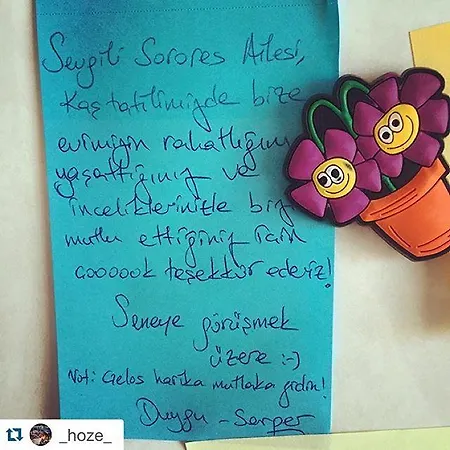 Sevgili Sorores Ailesi,
Kaş tatilimizde bize
evimizin rahatlığını
yaşattığınız ve
inceliklerinizle bizi
mutlu ettiğiniz için
çoooook teşekkür ederiz!
Seneye görüşmek
üzere :-)
Not: Gelos harika mutlaka gidin!
Duygu - Serper
_hoze_